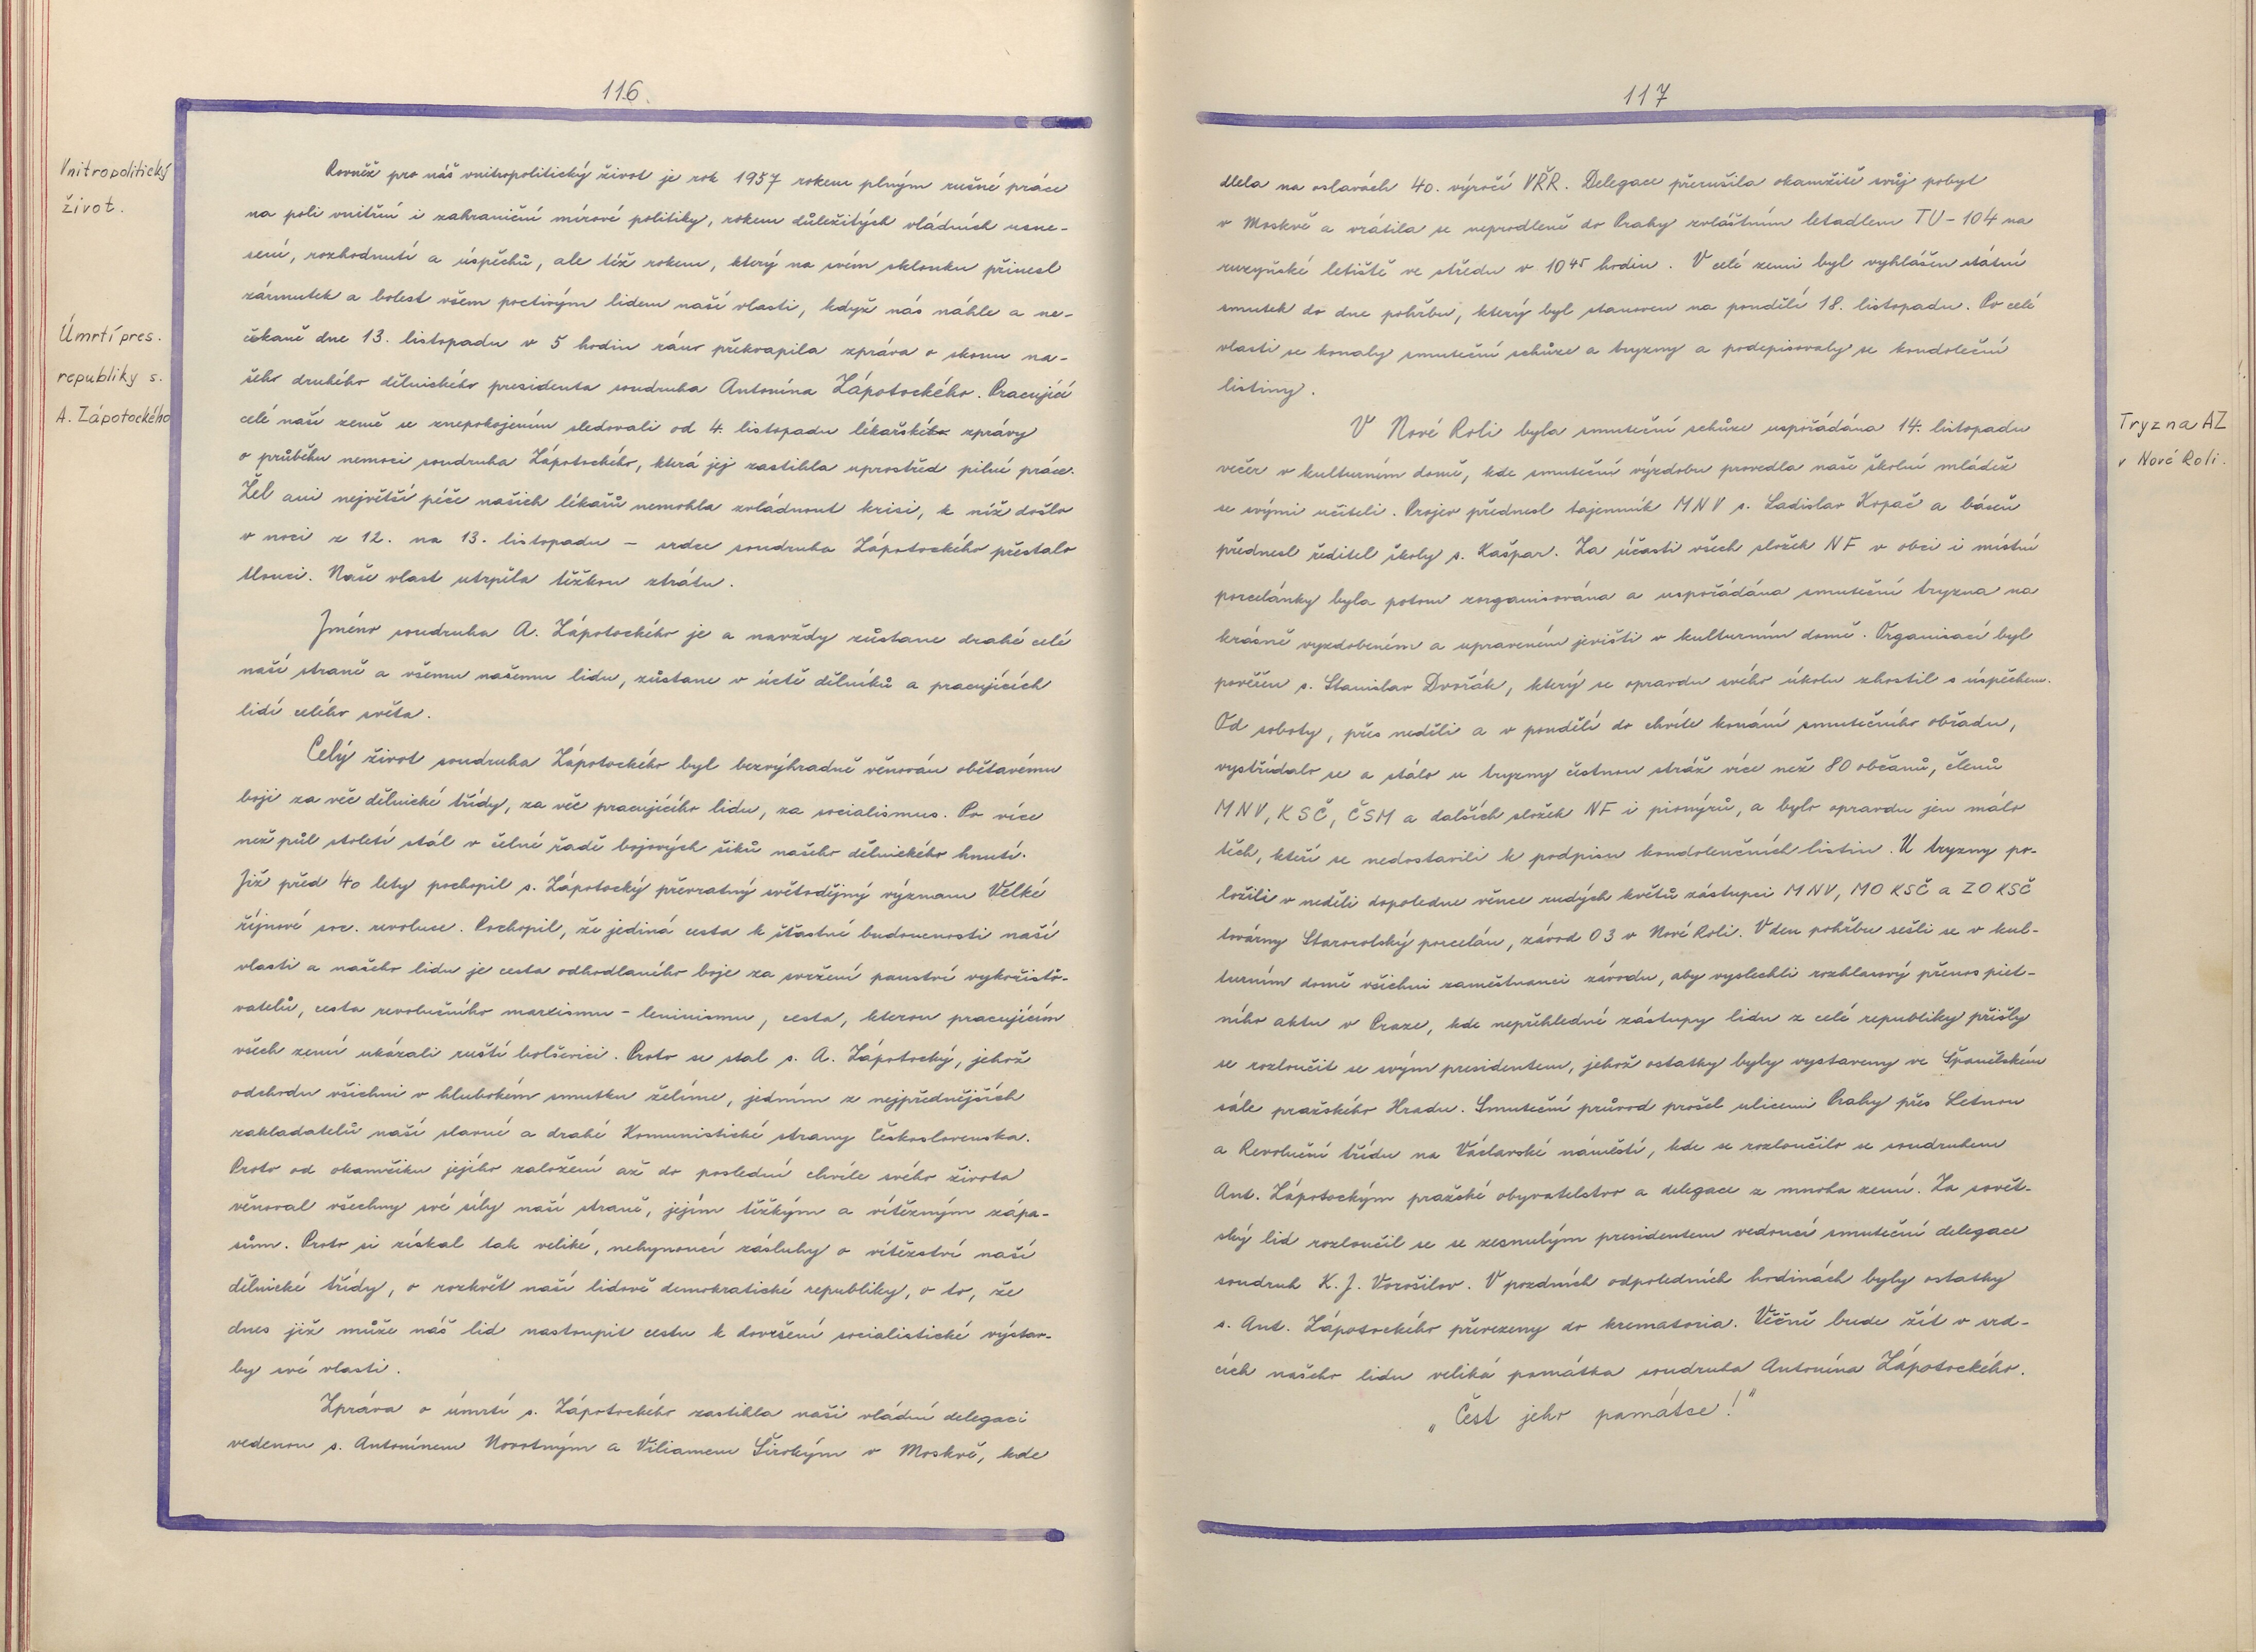 116.
Vnitropolitický
život.
Úmrtí pres.
republiky s.
A. Zápotockého
Rovněž pro náš vnitropolitický život je rok 1957 rokem plným rušné práce
na poli vnitřní i zahraniční mírové politiky, rokem důležitých vládních usne-
sení, rozhodnutí a úspěchů, ale též rokem, který na svém sklonku přinesl
zármutek a bolest všem poctivým lidem naší vlasti, když nás náhle a ne-
čekaně dne 13. listopadu v 5 hodin ráno překvapila zpráva o skonu na-
šeho druhého dělnického presidenta soudruha Antonína Zápotockého. Pracující
celé naší země se znepokojením sledovali od 4. listopadu lékařské zprávy
o průběhu nemoci soudruha Zápotockého, která jej zastihla uprostřed pilné práce.
Žel ani největší péče našich lékařů nemohla zvládnout krisi, k níž došlo
v noci z 12. na 13. listopadu – srdce soudruha Zápotockého přestalo
tlouci. Naše vlast utrpěla těžkou ztrátu.
Jméno soudruha A. Zápotockého je a navždy zůstane drahé celé
naší straně a všemu našemu lidu, zůstane v úctě dělníků a pracujících
lidí celého světa.
Celý život soudruha Zápotockého byl bezvýhradně věnován obětavému
boji za věc dělnické třídy, za věc pracujícího lidu, za socialismus. Po více
než půl století stál v čelné řadě bojových šiků našeho dělnického hnutí.
Již před 40 lety pochopil s. Zápotocký převratný světodějný význam Velké
říjnové soc. revoluce. Pochopil, že jediná cesta k šťastné budoucnosti naší
vlasti a našeho lidu je cesta odhodlaného boje za svržení panství vykořisťo-
vatelů, cesta revolučního marxismu – leninismu, cesta, kterou pracujícím
všech zemí ukázali ruští bolševici. Proto se stal s. A. Zápotocký, jehož
odchodu všichni v hlubokém smutku želíme, jedním z nejpřednějších
zakladatelů naší slavné a drahé Komunistické strany Československa.
Proto od okamžiku jejího založení až do poslední chvíle svého života
věnoval všechny své síly naší straně, jejím těžkým a vítězným zápa-
sům. Proto si získal tak veliké, nehynoucí zásluhy o vítězství naší
dělnické třídy, o rozkvět naší lidově demokratické republiky, o to, že
dnes již může náš lid nastoupit cestu k dovršení socialistické výstav-
by své vlasti.
Zpráva o úmrtí s. Zápotockého zastihla naši vládní delegaci
vedenou s. Antonínem Novotným a Viliamem Širokým v Moskvě, kde
117
dlela na oslavách 40. výročí VŘR. Delegace přerušila okamžitě svůj pobyt
v Moskvě a vrátila se neprodleně do Prahy zvláštním letadlem TU-104 na
ruzyňské letiště ve středu v 10⁴⁵ hodin. V celé zemi byl vyhlášen státní
smutek do dne pohřbu, který byl stanoven na pondělí 18. listopadu. Po celé
vlasti se konaly smuteční schůze a tryzny a podepisovaly se kondoleční
listiny.
Tryzna AZ
v Nové Roli.
V Nové Roli byla smuteční schůze uspořádána 14. listopadu
večer v kulturním domě, kde smuteční výzdobu provedla naše školní mládež
se svými učiteli. Projev přednesl tajemník MNV s. Ladislav Kopač a báseň
přednesl ředitel školy s. Kašpar. Za účasti všech složek NF v obci i místní
porcelánky byla potom zorganisována a uspořádána smuteční tryzna na
krásně vyzdobeném a upraveném jevišti v kulturním domě. Organisací byl
pověřen s. Stanislav Dvořák, který se opravdu svého úkolu zhostil s úspěchem.
Od soboty, přes neděli a v pondělí do chvíle konání smutečního obřadu,
vystřídalo se a stálo u tryzny čestnou stráž více než 80 občanů, členů
MNV, KSČ, ČSM a dalších složek NF i pionýrů, a bylo opravdu jen málo
těch, kteří se nedostavili k podpisu kondolenčních listin. U tryzny po-
ložili v neděli dopoledne věnce rudých květů zástupci MNV, MO KSČ a ZO KSČ
továrny Starorolský porcelán, závod 03 v Nové Roli. V den pohřbu sešli se v kul-
turním domě všichni zaměstnanci závodu, aby vyslechli rozhlasový přenos piet-
ního aktu v Praze, kde nepřehledné zástupy lidu z celé republiky přišly
se rozloučit se svým presidentem, jehož ostatky byly vystaveny ve Španělském
sále pražského Hradu. Smuteční průvod prošel ulicemi Prahy přes Letnou
a Revoluční třídu na Václavské náměstí, kde se rozloučilo se soudruhem
Ant. Zápotockým pražské obyvatelstvo a delegace z mnoha zemí. Za sovět-
ský lid rozloučil se se zesnulým presidentem vedoucí smuteční delegace
soudruh K. J. Vorošilov. V pozdních odpoledních hodinách byly ostatky
s. Ant. Zápotockého převezeny do krematoria. Věčně bude žít v srd-
cích našeho lidu veliká památka soudruha Antonína Zápotockého.
„Čest jeho památce!"